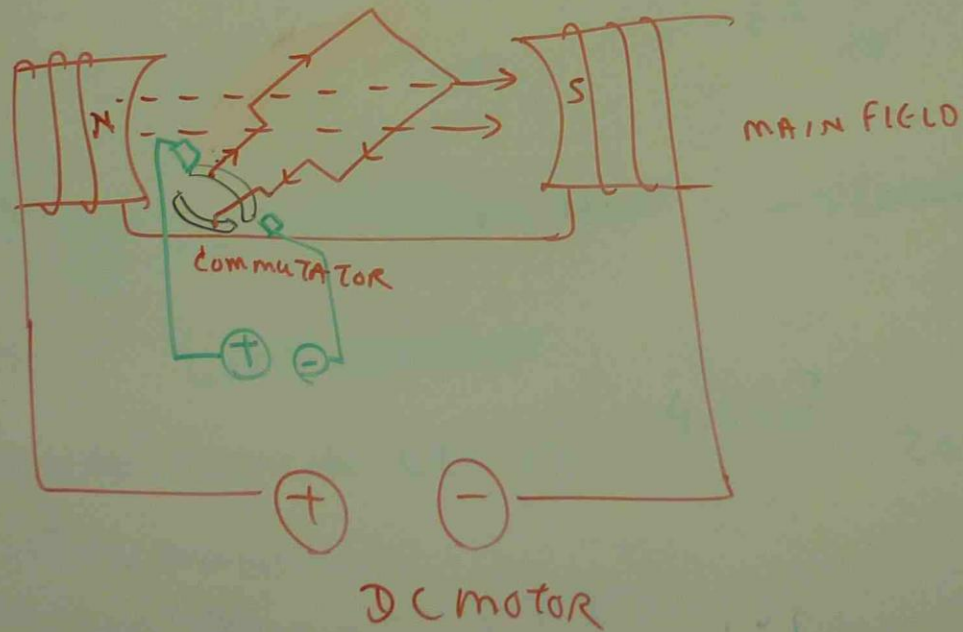 N
S
MAIN FIELD
COMMUTATOR
+ -
+ -
DC MOTOR